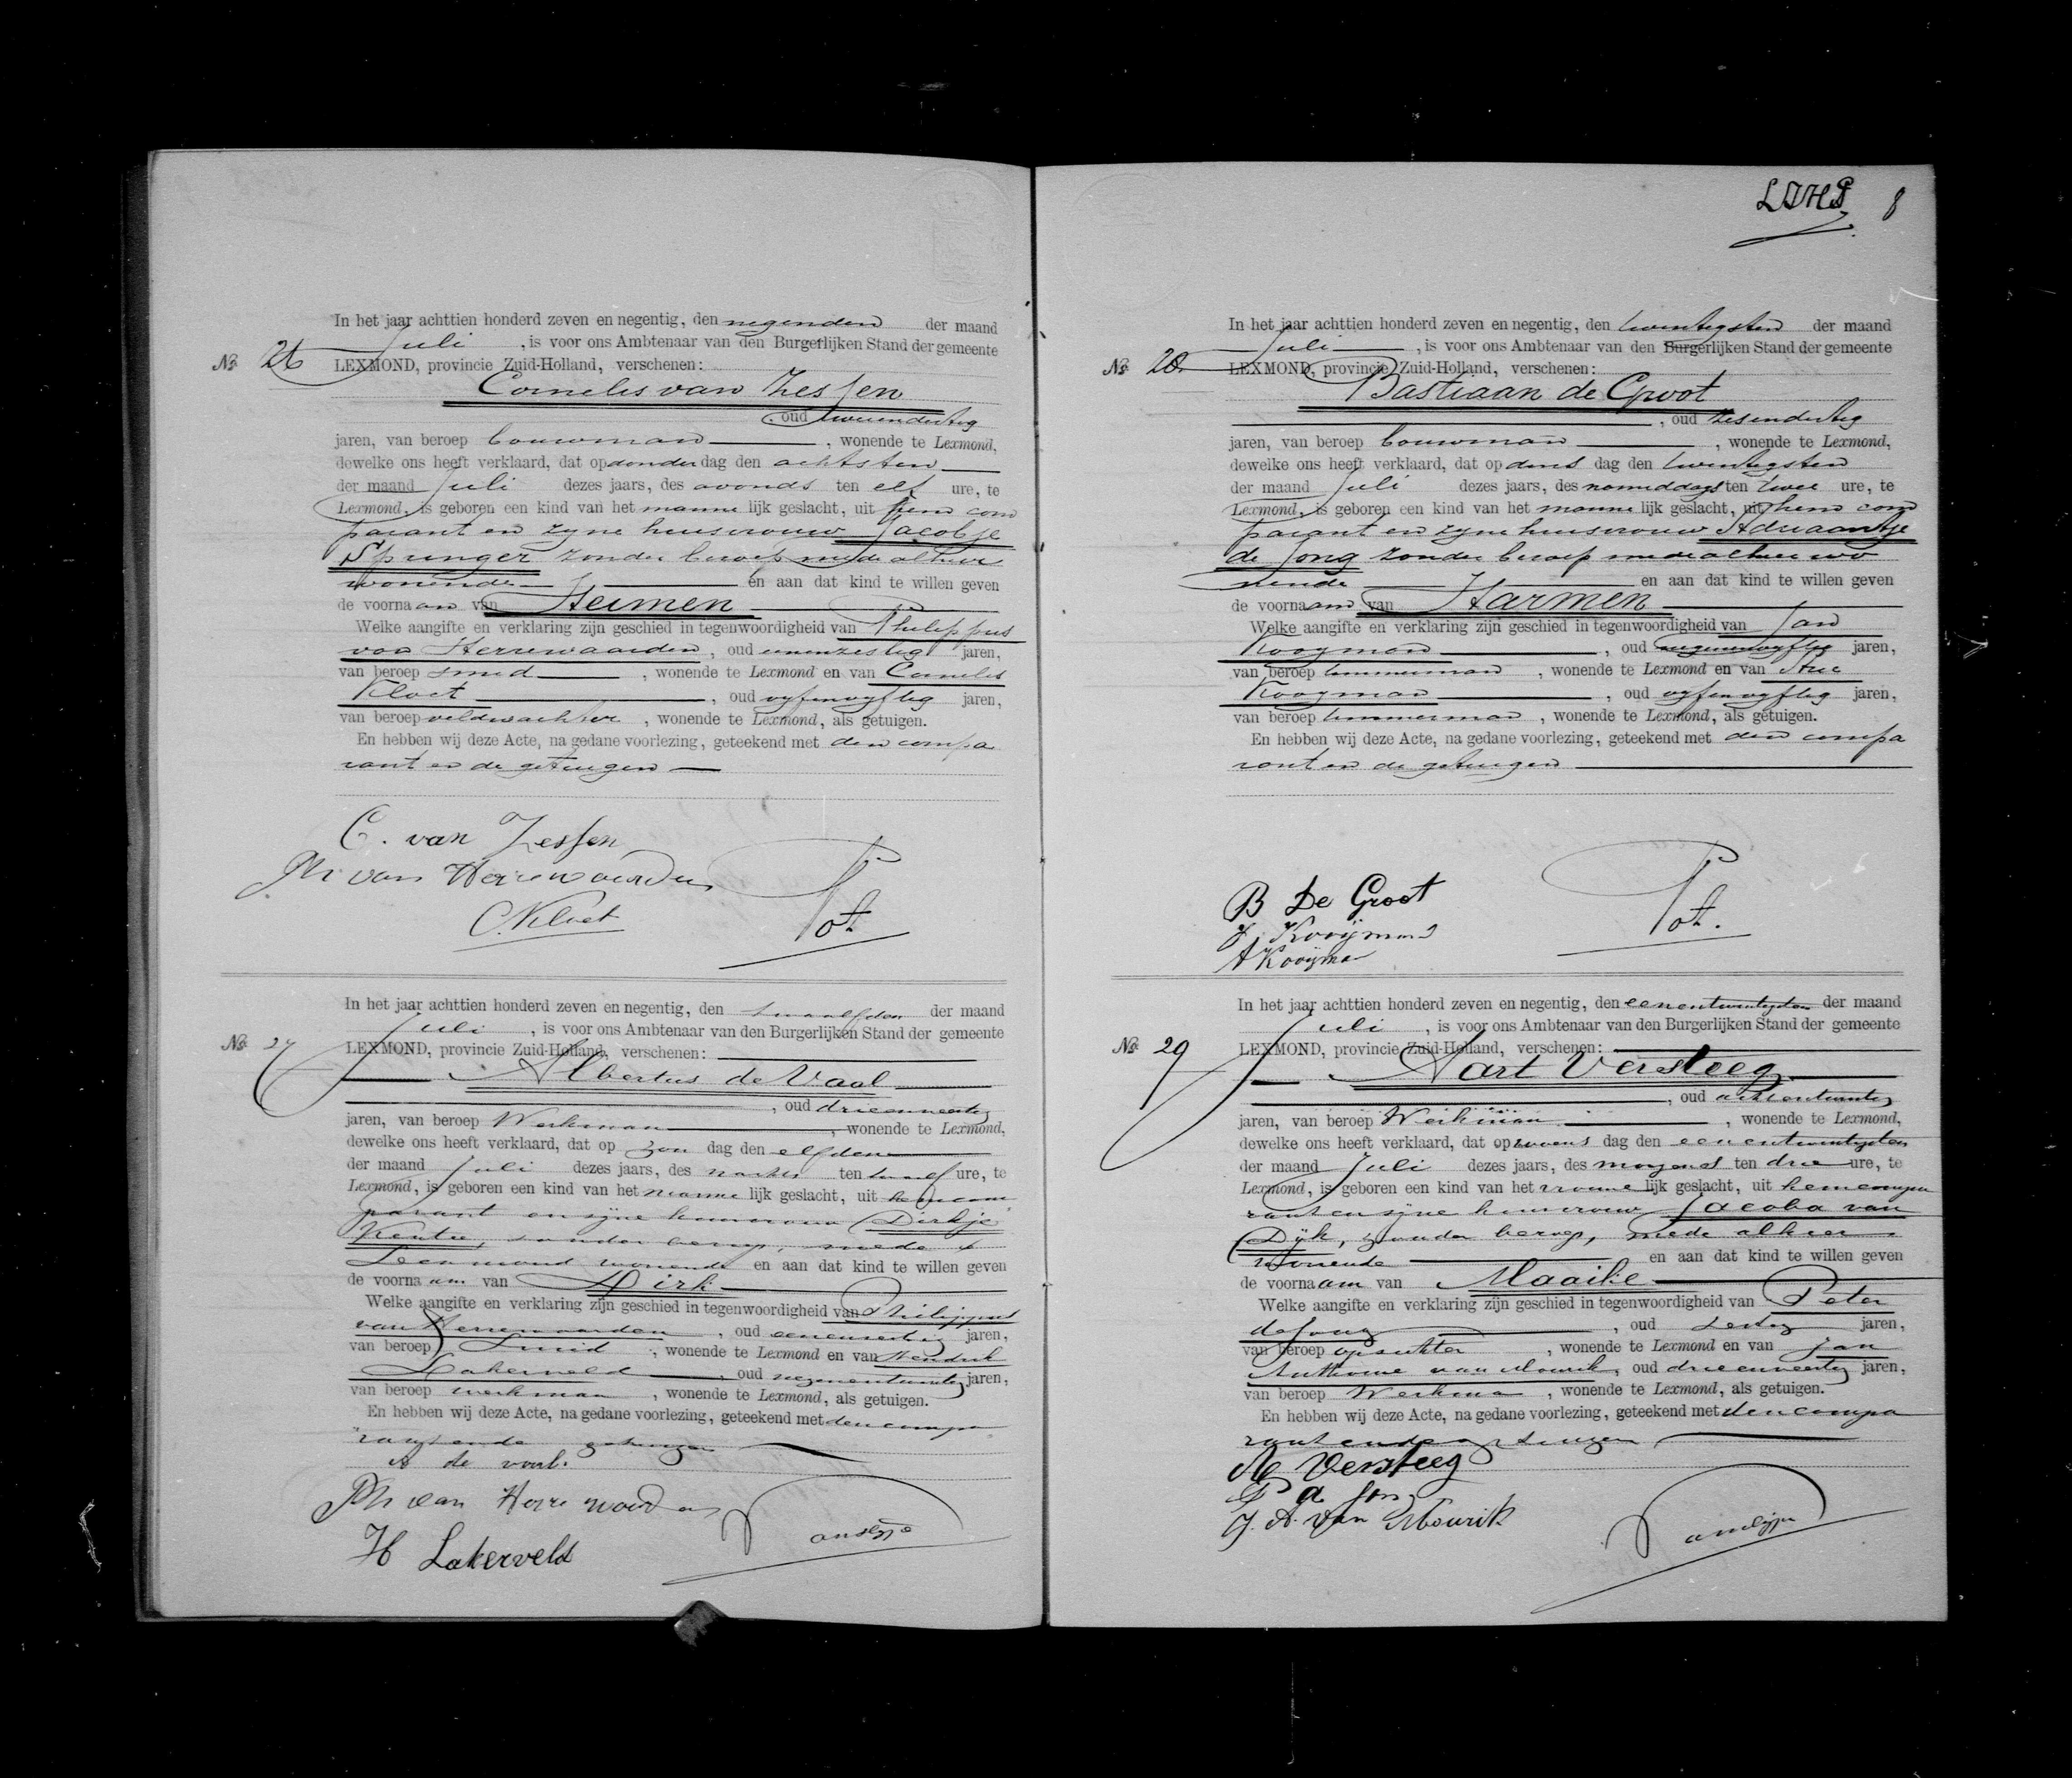 In het jaar achttien honderd zeven en negentig, den negenden der maand
Juli , is voor ons Ambtenaar van den Burgerlijken Stand der gemeente
No. 26 LEXMOND, provincie Zuid-Holland, verschenen:
Cornelis van Zessen
, oud tweendertig
jaren, van beroep bouwman , wonende te Lexmond,
dewelke ons heeft verklaard, dat op donderdag den achtsten
der maand Juli dezes jaars, des avonds ten elf ure, te
Lexmond, is geboren een kind van het mannelijk geslacht, uit hem com
parant en zyne huisvrouw Jacobje
Springer zonder beroep mede alhier
wonende en aan dat kind te willen geven
de voornaam van Heimen
Welke aangifte en verklaring zijn geschied in tegenwoordigheid van Philippus
van Herrewaarden , oud eenenzestig jaren,
van beroep smid , wonende te Lexmond en van Cornelis
Kloet , oud vyfenvyftig jaren,
van beroep veldwachter , wonende te Lexmond, als getuigen.
En hebben wij deze Acte, na gedane voorlezing, geteekend met den compa
rant en de getuigen
C. van Zessen
Ph van Herrewaarden
C. Kloet
Pot
In het jaar achttien honderd zeven en negentig, den twaalfden der maand
Juli , is voor ons Ambtenaar van den Burgerlijken Stand der gemeente
No. 27 LEXMOND, provincie Zuid-Holland, verschenen:
Albertus de Vaal
, oud drieenveertig
jaren, van beroep Werkman , wonende te Lexmond,
dewelke ons heeft verklaard, dat op zon dag den elfden
der maand Juli dezes jaars, des nachts ten twaalf ure, te
Lexmond, is geboren een kind van het mannelijk geslacht, uit hem com
parant en zijne huisvrouw Dirkje
zonder beroep, mede te
Lexmond wonende en aan dat kind te willen geven
de voornaam van Dirk
Welke aangifte en verklaring zijn geschied in tegenwoordigheid van Philippus
van Herrewaarden , oud eenenzestig jaren,
van beroep Smid , wonende te Lexmond en van Hendrik
Lakerveld , oud negenentwintig jaren,
van beroep werkman , wonende te Lexmond, als getuigen.
En hebben wij deze Acte, na gedane voorlezing, geteekend met den compa
rant en de getuigen
A de vaal.
Ph van Herrewaarden
H Lakerveld
8
In het jaar achttien honderd zeven en negentig, den twintigsten der maand
Juli , is voor ons Ambtenaar van den Burgerlijken Stand der gemeente
No. 28 LEXMOND, provincie Zuid-Holland, verschenen:
Bastiaan de Groot
, oud zesendertig
jaren, van beroep bouwman , wonende te Lexmond,
dewelke ons heeft verklaard, dat op dinsdag den twintigsten
der maand Juli dezes jaars, des namiddags ten twee ure, te
Lexmond, is geboren een kind van het mannelijk geslacht, uit hem com
parant en zyne huisvrouw Adriaantje
de Jong zonder beroep mede alhier wo
nende en aan dat kind te willen geven
de voornaam van Harmen
Welke aangifte en verklaring zijn geschied in tegenwoordigheid van Jan
Kooyman , oud negenenvyftig jaren,
van beroep timmerman , wonende te Lexmond en van Arie
Kooyman , oud vyfenvyftig jaren,
van beroep timmerman , wonende te Lexmond, als getuigen.
En hebben wij deze Acte, na gedane voorlezing, geteekend met den compa
rant en de getuigen
B De Groot
J. Kooijman
A Kooijman
Pot.
In het jaar achttien honderd zeven en negentig, den eenentwintigsten der maand
Juli , is voor ons Ambtenaar van den Burgerlijken Stand der gemeente
No. 29 LEXMOND, provincie Zuid-Holland, verschenen:
Aart Versteeg
, oud achtentwintig
jaren, van beroep Werkman , wonende te Lexmond,
dewelke ons heeft verklaard, dat op woensdag den eenentwintigsten
der maand Juli dezes jaars, des morgens ten drie ure, te
Lexmond, is geboren een kind van het vrouwelijk geslacht, uit hem compa
rant en zijne huisvrouw Jacoba van
Dijk, zonder beroep, mede alhier
wonende en aan dat kind te willen geven
de voornaam van Maaike
Welke aangifte en verklaring zijn geschied in tegenwoordigheid van Peter
de Jong , oud zestig jaren,
van beroep opzichter , wonende te Lexmond en van Jan
Anthonie van Mourik, oud drieenveertig jaren,
van beroep Werkman , wonende te Lexmond, als getuigen.
En hebben wij deze Acte, na gedane voorlezing, geteekend met den compa
rant en de getuigen
A Versteeg
P d Jong
J. A. van Mourik